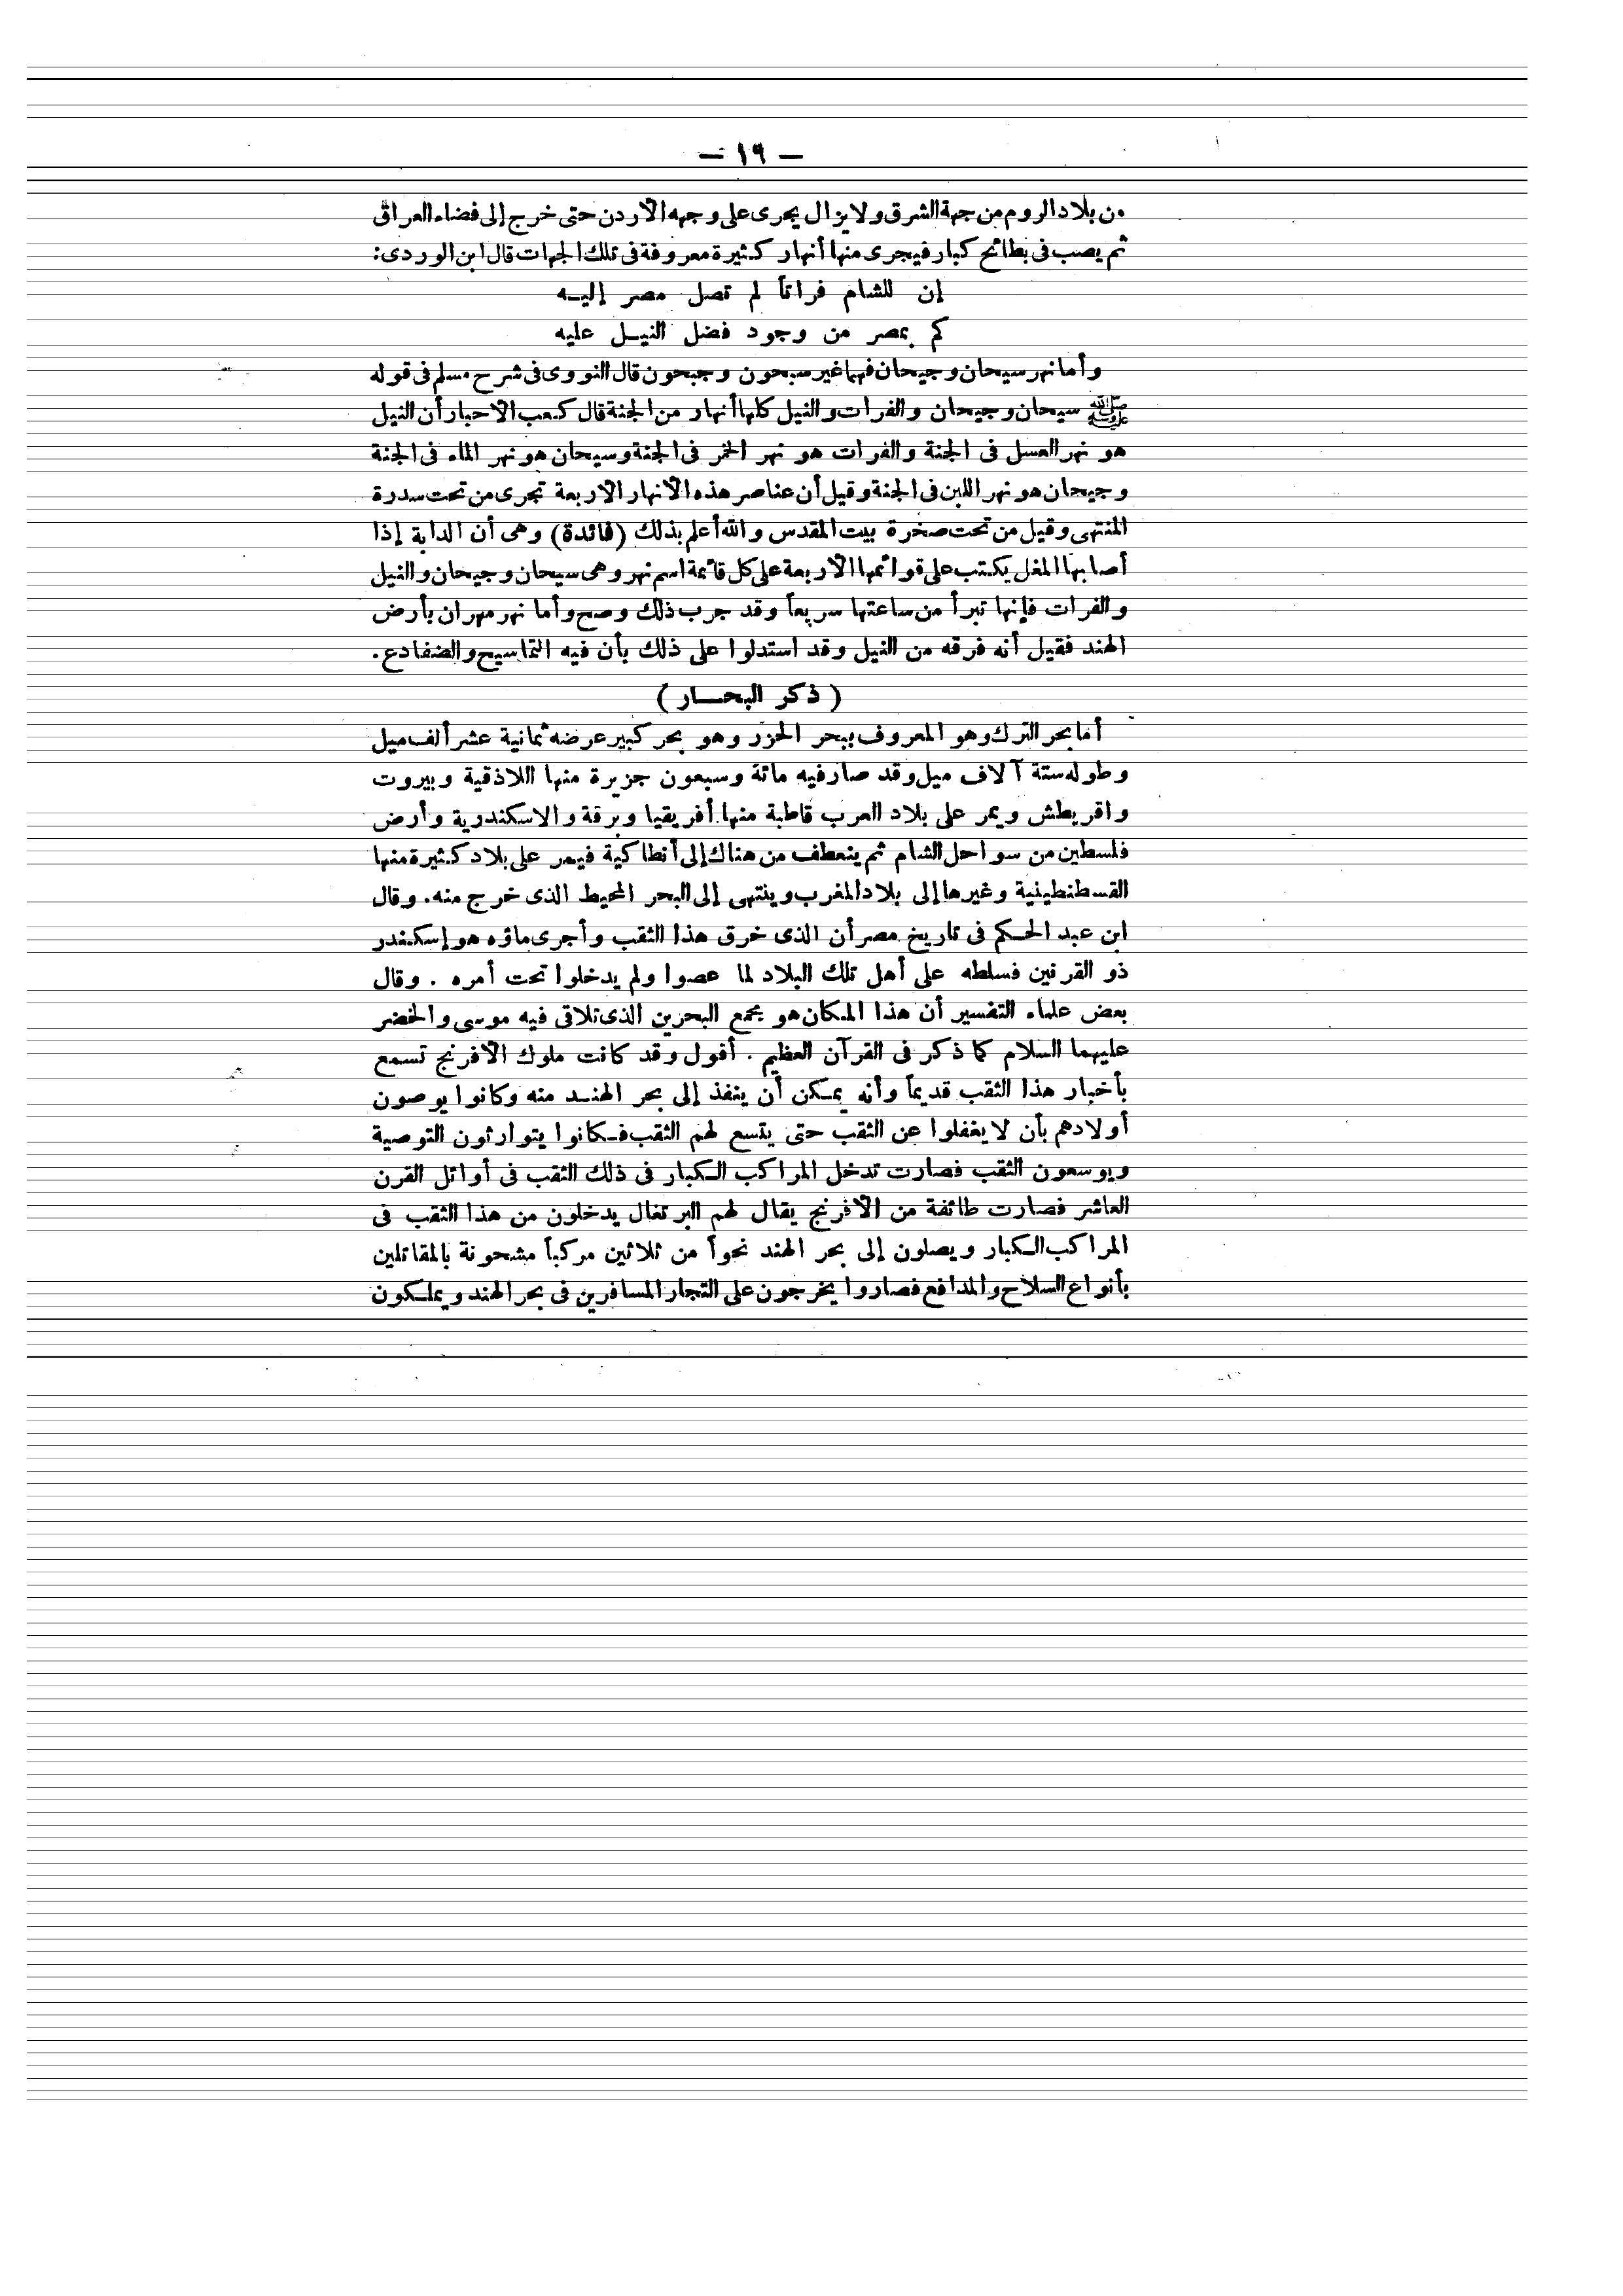 — ١٩ —
من بلاد الروم من جهة الشرق ولا يزال يجرى على وجهه الأردن حتى خرج إلى فضاء العراق
ثم يصب فى بطائح كبار فيجرى منها أنهار كثيرة معروفة فى تلك الجهات قال ابن الوردى:
إن للشام فراتاً لم تصل مصر إليه
كم بمصر من وجود فضل النيل عليه
وأما نهر سيحان وجيحان فهما غير سيحون وجيحون قال النووى فى شرح مسلم فى قوله
ﷺ سيحان وجيحان والفرات والنيل كلها أنهار من الجنة قال كعب الاحبار أن النيل
هو نهر العسل فى الجنة والفرات هو نهر الخمر فى الجنة وسيحان هو نهر الماء فى الجنة
وجيحان هو نهر اللبن فى الجنة وقيل أن عناصر هذه الانهار الاربعة تجرى من تحت سدرة
المنتهى وقيل من تحت صخرة بيت المقدس والله أعلم بذلك (فائدة) وهى أن الدابة إذا
أصابها المغل يكتب على قوائمها الاربعة على كل قائمة اسم نهر وهى سيحان وجيحان والنيل
والفرات فإنها تبرأ من ساعتها سريعاً وقد جرب ذلك وصح وأما نهر مهران بأرض
الهند فقيل أنه فرقه من النيل وقد استدلوا على ذلك بأن فيه التماسيح والضفادع.
( ذكر البحـــار )
أما بحر الترك وهو المعروف ببحر الخزر وهو بحر كبير عرضه ثمانية عشر ألف ميل
وطوله ستة آلاف ميل وقد صار فيه مائة وسبعون جزيرة منها اللاذقية وبيروت
واقريطش ويمر على بلاد العرب قاطبة منها أفريقيا وبرقة والاسكندرية وأرض
فلسطين من سواحل الشام ثم ينعطف من هناك إلى أنطاكية فيمر على بلاد كثيرة منها
القسطنطينية وغيرها إلى بلاد المغرب وينتهى إلى البحر المحيط الذى خرج منه. وقال
ابن عبد الحكم فى تاريخ مصر أن الذى خرق هذا الثقب وأجرى ماؤه هو إسكندر
ذو القرنين فسلطه على أهل تلك البلاد لما عصوا ولم يدخلوا تحت أمره . وقال
بعض علماء التفسير أن هذا المكان هو مجمع البحرين الذى تلاقى فيه موسى والخضر
عليهما السلام كما ذكر فى القرآن العظيم . أقول وقد كانت ملوك الافرنج تسمع
بأخبار هذا الثقب قديماً وأنه يمكن أن ينفذ إلى بحر الهند منه وكانوا يوصون
أولادهم بأن لا يغفلوا عن الثقب حتى يتسع لهم الثقب فكانوا يتوارثون التوصية
ويوسعون الثقب فصارت تدخل المراكب الكبار فى ذلك الثقب فى أوائل القرن
العاشر فصارت طائفة من الافرنج يقال لهم البرتغال يدخلون من هذا الثقب فى
المراكب الكبار ويصلون إلى بحر الهند نحواً من ثلاثين مركباً مشحونة بالمقاتلين
بأنواع السلاح والمدافع فصاروا يخرجون على التجار المسافرين فى بحر الهند ويملكون